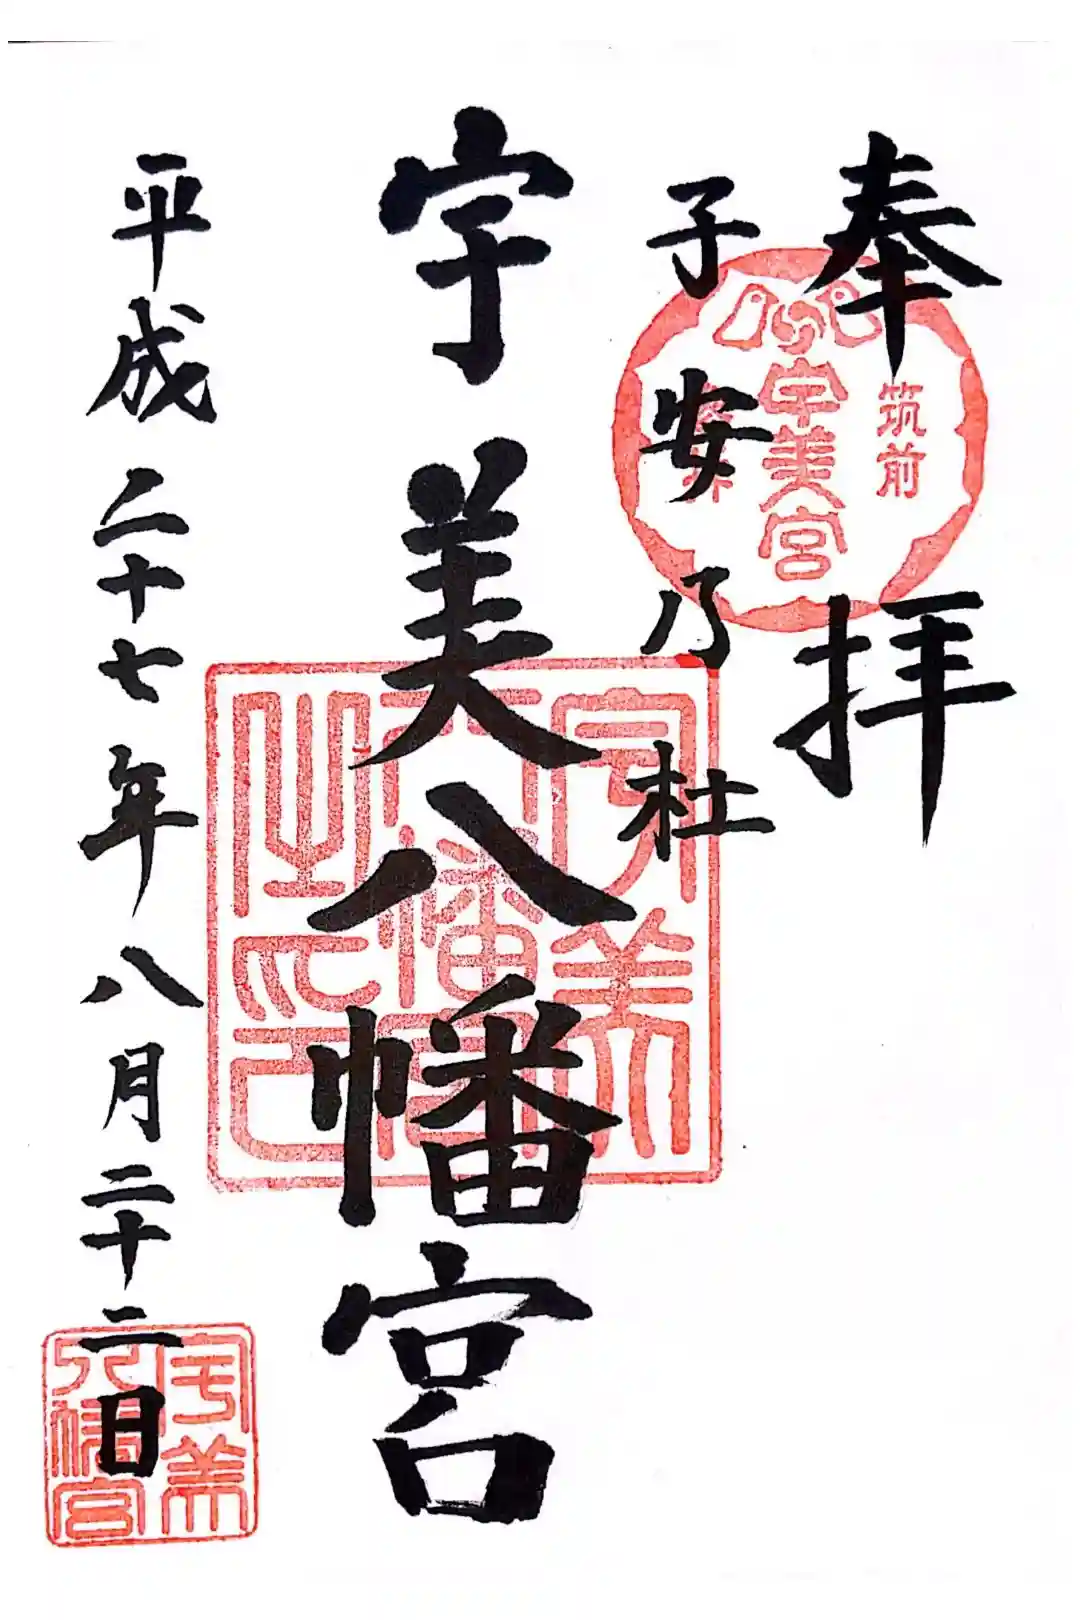 奉拝
筑前
宇美宮
子安乃杜
宇美八幡宮
宇美
八幡宮
之印
平成二十七年八月二十二日
宇美
八幡宮